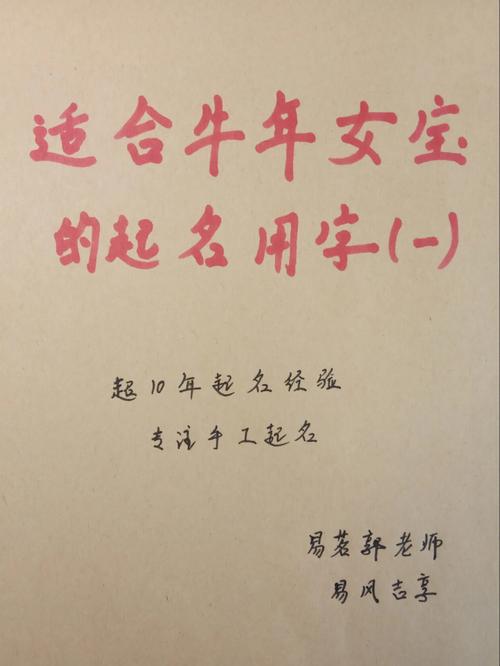 适合牛年女宝
的起名用字(一)
超10年起名经验
专注手工起名
易茗郭老师
易风吉享